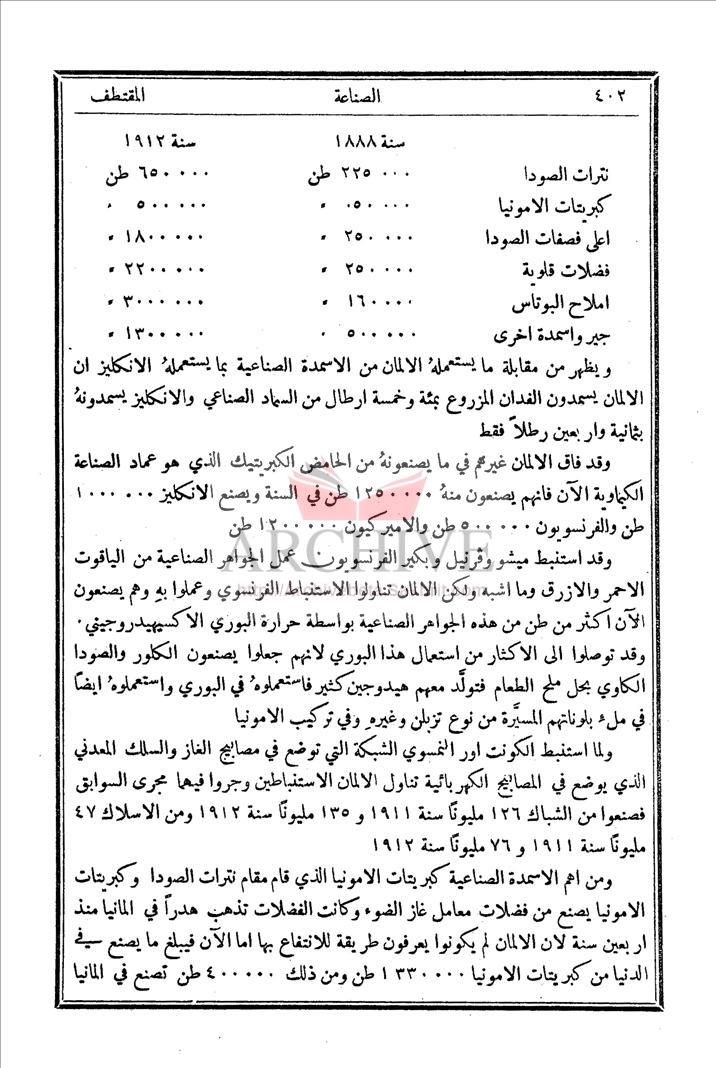 ٤٠٢ الصناعة المقتطف
سنة ١٨٨٨ سنة ١٩١٢
نترات الصودا ٢٢٥٠٠٠ طن ٦٥٠٠٠٠ طن
كبريتات الامونيا ٠٥٠٠٠٠ " ٥٠٠٠٠٠ "
اعلى فصفات الصودا ٢٥٠٠٠٠ " ١٨٠٠٠٠٠ "
فضلات قلوية ٢٥٠٠٠٠ " ٢٢٠٠٠٠٠ "
املاح البوتاس ١٦٠٠٠٠ " ٣٠٠٠٠٠٠ "
جير واسمدة اخرى ٥٠٠٠٠٠ " ١٣٠٠٠٠٠ "
ويظهر من مقابلة ما يستعملهُ الالمان من الاسمدة الصناعية بما يستعملهُ الانكليز ان
الالمان يسمدون الفدان المزروع بمئة وخمسة ارطال من السماد الصناعي والانكليز يسمدونهُ
بثانية واربعين رطلاً فقط
وقد فاق الالمان غيرهم في ما يصنعونهُ من الحامض الكبريتيك الذي هو عماد الصناعة
الكيماوية الآن فانهم يصنعون منهُ ١٢٥٠٠٠٠ طن في السنة ويصنع الانكليز ١٠٠٠٠٠٠
طن والفرنسويون ٥٠٠٠٠٠ طن والاميركيون ١٢٠٠٠٠٠ طن
وقد استنبط ميشو وڤرنيل وبكير الفرنسويون عمل الجواهر الصناعية من الياقوت
الاحمر والازرق وما اشبه ولكن الالمان تناولوا الاستنباط الفرنسوي وعملوا به وهم يصنعون
الآن اكثر من طن من هذه الجواهر الصناعية بواسطة حرارة البوري الاكسيهيدروجيني.
وقد توصلوا الى الاكثار من استعمال هذا البوري لانهم جعلوا يصنعون الكلور والصودا
الكاوي بحل ملح الطعام فتولَّد معهم هيدوجين كثير فاستعملوهُ في البوري واستعملوهُ ايضاً
في ملء بلوناتهم المسيَّرة من نوع تزبلن وغيره وفي تركيب الامونيا
ولما استنبط الكونت اور النمسوي الشبكة التي توضع في مصابيح الغاز والسلك المعدني
الذي يوضع في المصابيح الكهربائية تناول الالمان الاستنباطين وجروا فيهما مجرى السوابق
فصنعوا من الشباك ١٢٦ مليونًا سنة ١٩١١ و ١٣٥ مليونًا سنة ١٩١٢ ومن الاسلاك ٤٧
مليونًا سنة ١٩١١ و ٧٦ مليونًا سنة ١٩١٢
ومن اهم الاسمدة الصناعية كبريتات الامونيا الذي قام مقام نترات الصودا وكبريتات
الامونيا يصنع من فضلات معامل غاز الضوء وكانت الفضلات تذهب هدراً في المانيا منذ
اربعين سنة لان الالمان لم يكونوا يعرفون طريقة للانتفاع بها اما الآن فيبلغ ما يصنع في
الدنيا من كبريتات الامونيا ١٣٣٠٠٠٠ طن ومن ذلك ٤٠٠٠٠٠ طن تصنع في المانيا
ARCHIVE